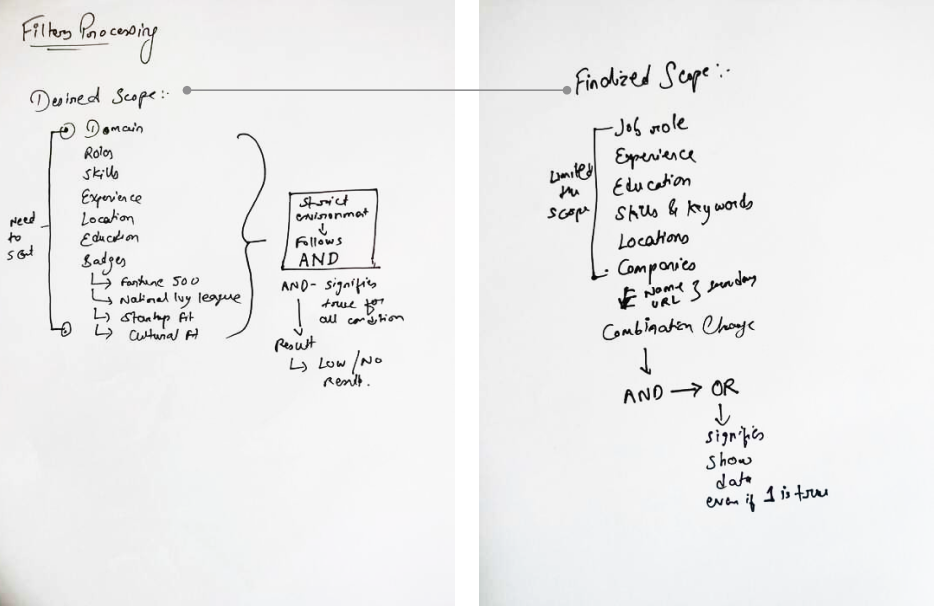 Filters Processing
Desired Scope:-
Domain
Roles
Skills
Experience
Location
Education
Badges
Fortune 500
National Ivy league
Startup fit
Cultural fit
Need
to
sort
Strict
environment
Follows
AND
AND - signifies
true for
all condition
Result
Low / No
result.
Finalized Scope:-
Job role
Experience
Education
Skills & Keywords
Locations
Companies
Name
URL
Limited
the
scope
Combination Change
AND → OR
signifies
show
data
even if 1 is true